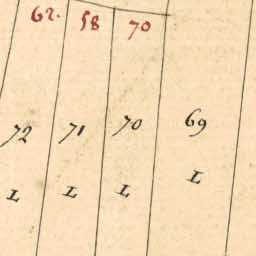 62. 58 70
72 71 70 69
L L L L